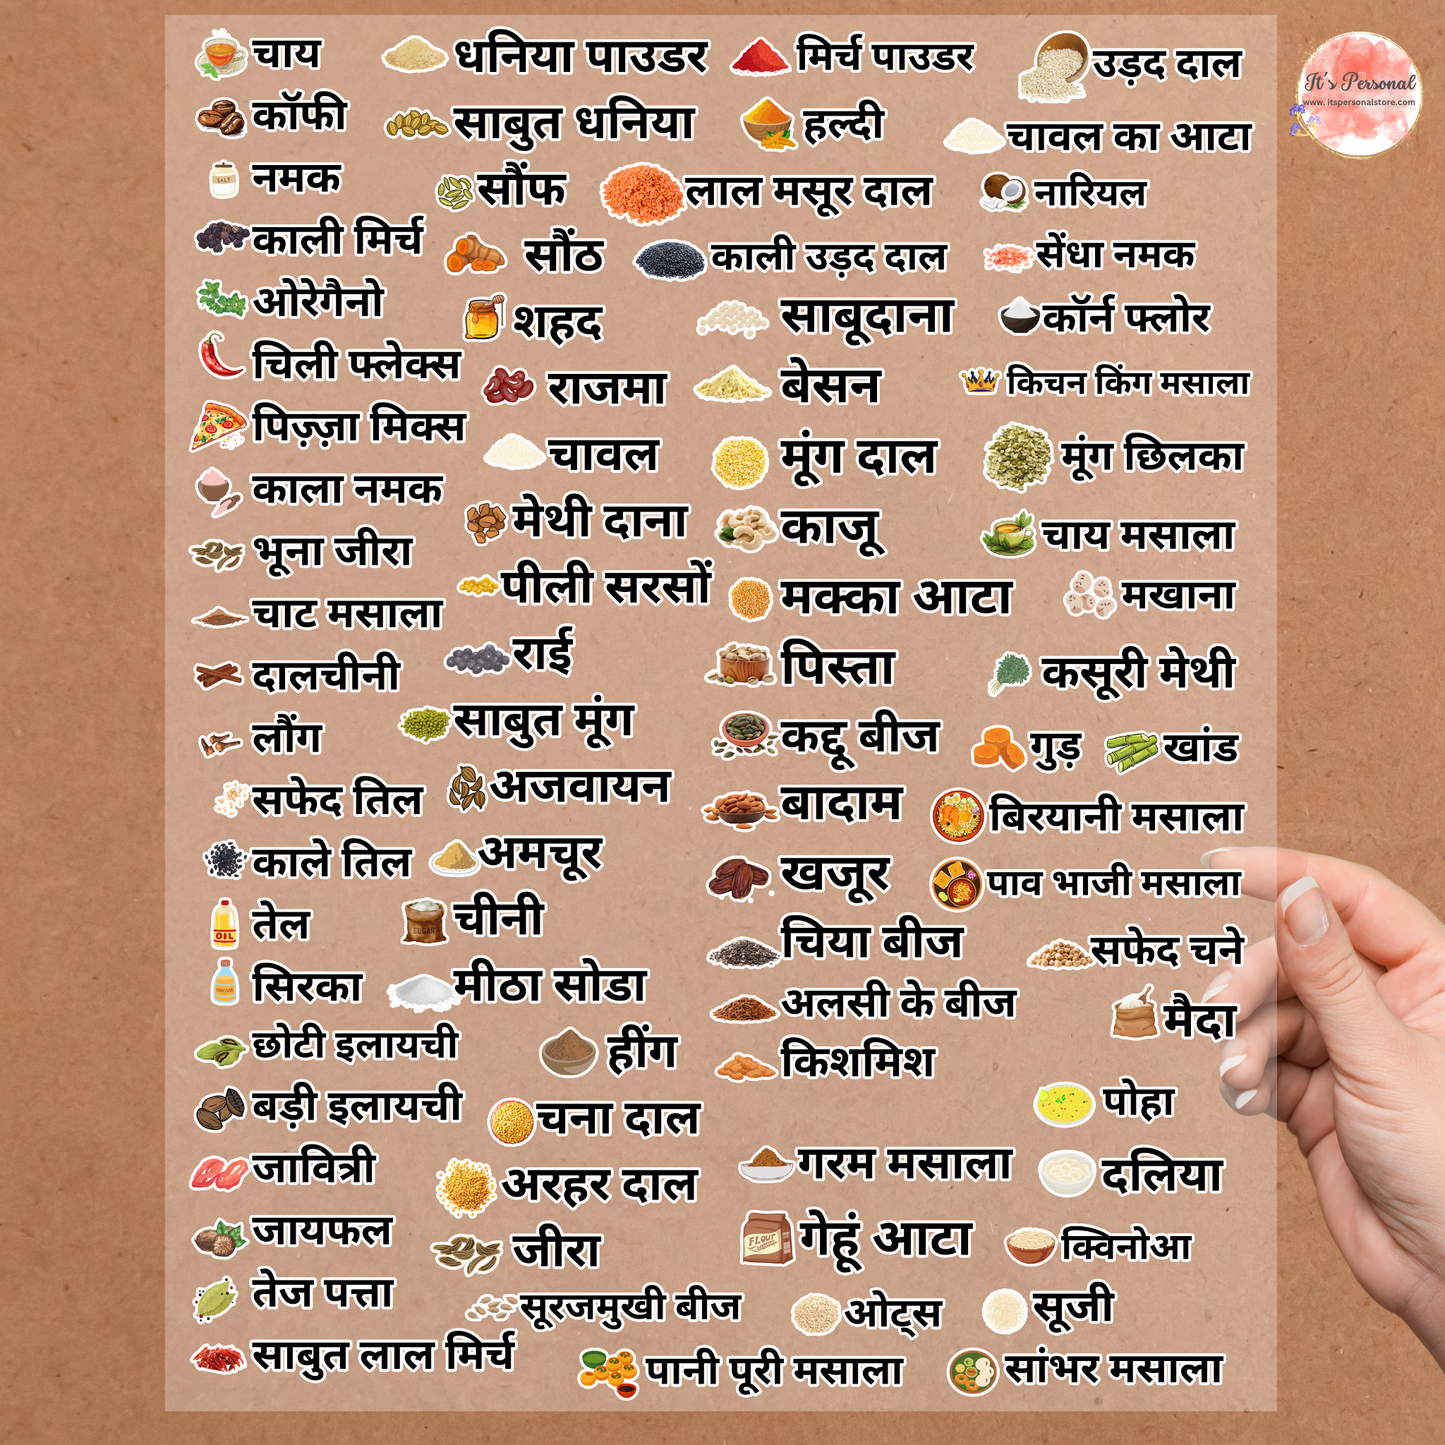 चाय
कॉफी
SALT
नमक
काली मिर्च
ओरेगैनो
चिली फ्लेक्स
पिज़्ज़ा मिक्स
काला नमक
भूना जीरा
चाट मसाला
दालचीनी
लौंग
सफेद तिल
काले तिल
OIL
तेल
सिरका
छोटी इलायची
बड़ी इलायची
जावित्री
जायफल
तेज पत्ता
साबुत लाल मिर्च
धनिया पाउडर
साबुत धनिया
सौंफ
सौंठ
शहद
राजमा
चावल
मेथी दाना
पीली सरसों
राई
साबुत मूंग
अजवायन
अमचूर
SUGAR
चीनी
मीठा सोडा
हींग
चना दाल
अरहर दाल
जीरा
सूरजमुखी बीज
पानी पूरी मसाला
मिर्च पाउडर
हल्दी
लाल मसूर दाल
काली उड़द दाल
साबूदाना
बेसन
मूंग दाल
काजू
मक्का आटा
पिस्ता
कद्दू बीज
बादाम
खजूर
चिया बीज
अलसी के बीज
किशमिश
गरम मसाला
FLOUR
गेहूं आटा
ओट्स
उड़द दाल
चावल का आटा
नारियल
सेंधा नमक
कॉर्न फ्लोर
किचन किंग मसाला
मूंग छिलका
चाय मसाला
मखाना
कसूरी मेथी
गुड़
खांड
बिरयानी मसाला
पाव भाजी मसाला
सफेद चने
मैदा
पोहा
दलिया
क्विनोआ
सूजी
सांभर मसाला
It's Personal
www.itspersonalstore.com